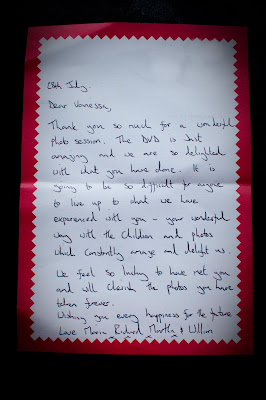 28th July.
Dear Vanessa,
Thank you so much for a wonderful
photo session. The DVD is just
amazing and we are so delighted
with what you have done. It is
going to be so difficult for anyone
to live up to what we have
experienced with you - your wonderful
way with the children and photos
which constantly amaze and delight us.
We feel so lucky to have met you
and will cherish the photos you have
taken forever.
Wishing you every happiness for the future
Love Maria, Richard, Martha & William